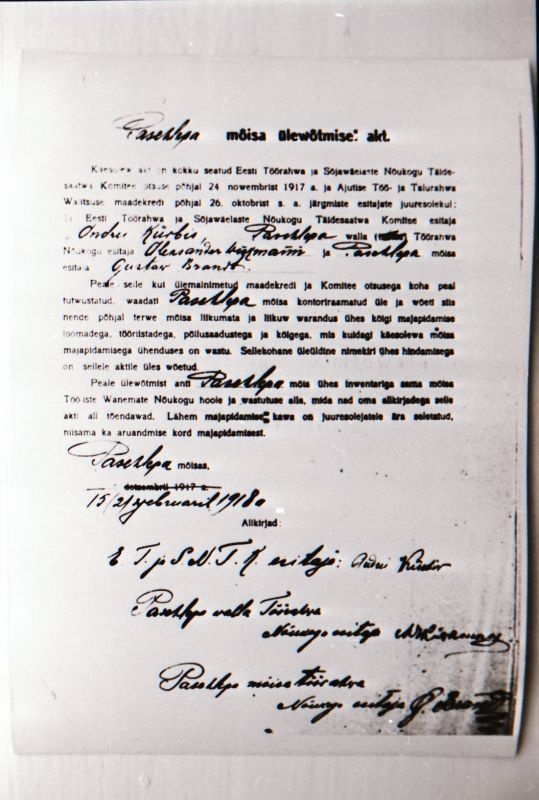 Pasklepa mõisa ülewõtmise akt.
Käesolew akt on kokku seatud Eesti Töörahwa ja Sõjawäelaste Nõukogu Täide-
saatwa Komitee otsuse põhjal 24 nowembrist 1917 a. ja Ajutise Töö- ja Talurahwa
Walitsuse maadekredi põhjal 26. oktobrist s. a. järgmiste esitajate juuresolekul:
Eesti Töörahwa ja Sõjawäelaste Nõukogu Täidesaatwa Komitee esitaja
Andrei Kürbis, Pasklepa walla Töörahwa
Nõukogu esitaja Aleksander ja Pasklepa mõisa
esitaja Gustav Brandt.
Peale selle kui ülemainimetud maadekredi ja Komitee otsusega koha peal
tutwustatud, waadati Pasklepa mõisa kontoriraamatud üle ja wõeti siis
nende põhjal terwe mõisa liikumata ja liikuw warandus ühes kõigi majapidamise
loomadega, tööriistadega, põllusaadustega ja kõigega, mis kuidagi käesolewa mõisa
majapidamisega ühenduses on wastu. Sellekohane üleüldine nimekiri ühes hindamisega
on sellele aktile üles wõetud.
Peale ülewõtmist anti Pasklepa mõis ühes inwentariga sama mõisa
Tööliste Wanemate Nõukogu hoole ja wastutuse alla, mida nad oma alikirjadega selle
akti all tõendawad. Lähem majapidamise kawa on juuresolejatele ära seletatud,
niisama ka aruandmise kord majapidamisest.
Pasklepa mõisas,
detsembril 1917 a.
15/(2) webruaril 1918 a
Allkirjad:
E. T. ja S. N. T. K. esitaja: Andrei
Pasklepa walla Töörahwa
Nõukogu esitaja
Pasklepa mõisa töörahwa
Nõukogu esitaja G. Brandt